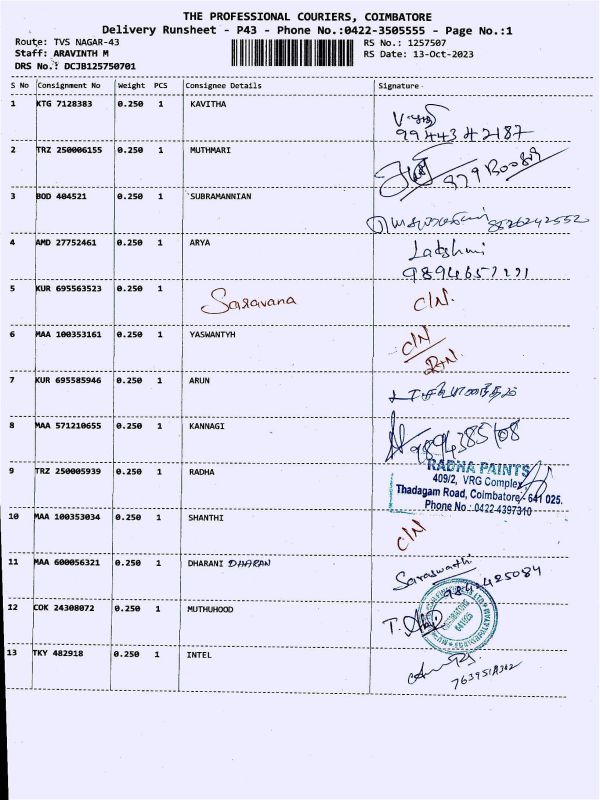 THE PROFESSIONAL COURIERS, COIMBATORE
Delivery Runsheet - P43 - Phone No.:0422-3505555 - Page No.:1
Route: TVS NAGAR-43 RS No.: 1257507
Staff: ARAVINTH M RS Date: 13-Oct-2023
DRS No.: DCJB125750701
S No Consignment No Weight PCS Consignee Details Signature
1 KTG 7128383 0.250 1 KAVITHA
99443 42187
2 TRZ 250006155 0.250 1 MUTHMARI
3 BOD 404521 0.250 1 SUBRAMANNIAN
8526242552
4 AMD 27752461 0.250 1 ARYA Lakshmi
5 KUR 695563523 0.250 1 Saravana C/N.
6 MAA 100353161 0.250 1 YASWANTYH C/N
7 KUR 695585946 0.250 1 ARUN
8 MAA 571210655 0.250 1 KANNAGI
9 TRZ 250005939 0.250 1 RADHA RADHA PAINTS
409/2, VRG Complex,
Thadagam Road, Coimbatore - 641 025.
Phone No : 0422-4397310
10 MAA 100353034 0.250 1 SHANTHI C/N
11 MAA 600056321 0.250 1 DHARANI DHARAN Saraswathi
12 COK 24308072 0.250 1 MUTHUHOOD
13 TKY 482918 0.250 1 INTEL